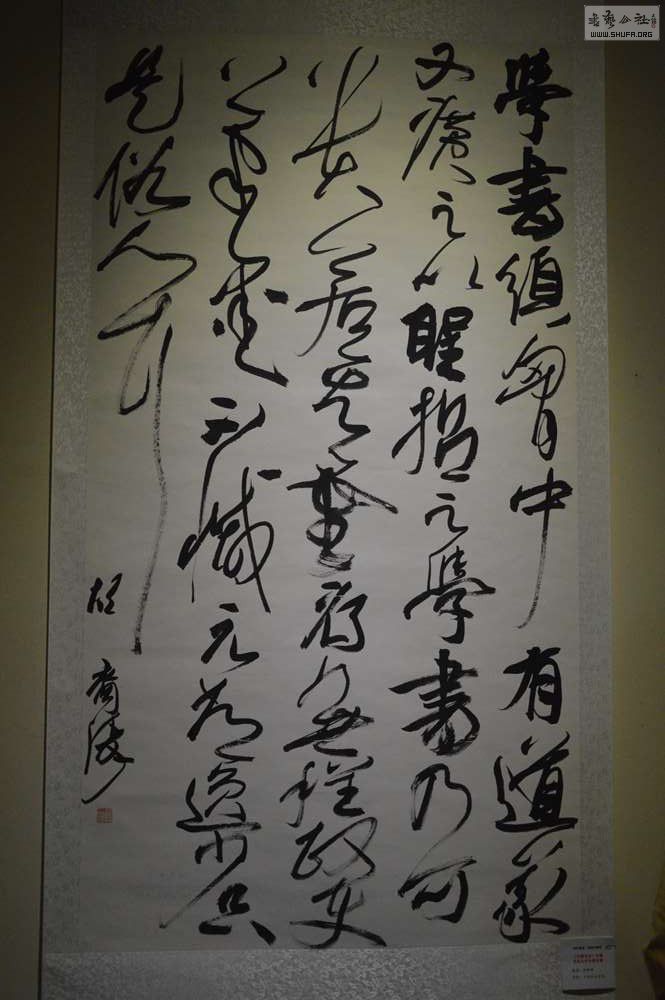 學書須胷中有道義
又廣之以聖哲之學書乃可
貴若其靈府無程政使
筆墨不減元常逸少只
是俗人耳
書藝公社
WWW.SHUFA.ORG